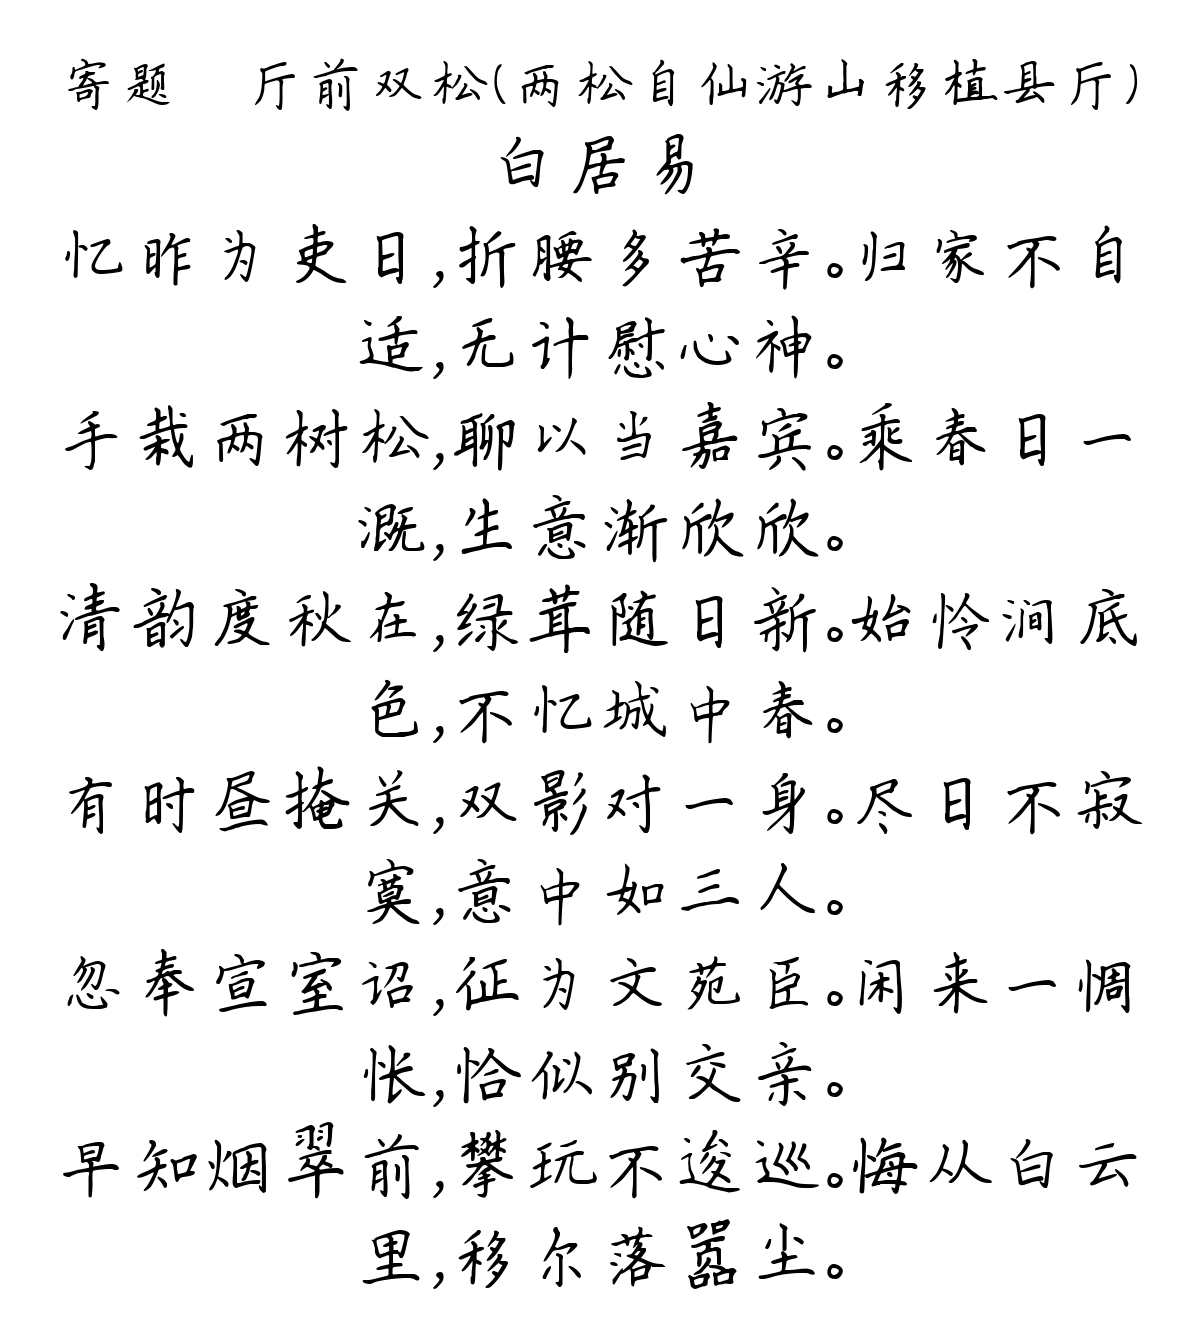 寄题　厅前双松(两松自仙游山移植县厅)
白居易
忆昨为吏日,折腰多苦辛。归家不自
适,无计慰心神。
手栽两树松,聊以当嘉宾。乘春日一
溉,生意渐欣欣。
清韵度秋在,绿茸随日新。始怜涧底
色,不忆城中春。
有时昼掩关,双影对一身。尽日不寂
寞,意中如三人。
忽奉宣室诏,征为文苑臣。闲来一惆
怅,恰似别交亲。
早知烟翠前,攀玩不逡巡。悔从白云
里,移尔落嚣尘。